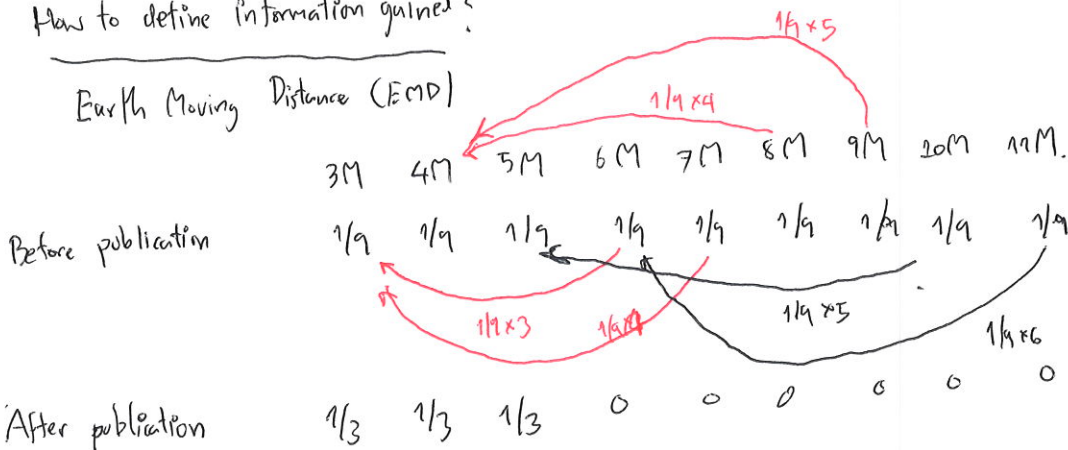 How to define information gained?
Earth Moving Distance (EMD)
1/9 x 5
1/9 x4
3M 4M 5M 6M 7M 8M 9M 10M 11M.
Before publication 1/9 1/9 1/9 1/9 1/9 1/9 1/9 1/9 1/9
1/9 x3 1/9x4 1/9 x5
1/9 x6
After publication 1/3 1/3 1/3 0 0 0 0 0 0